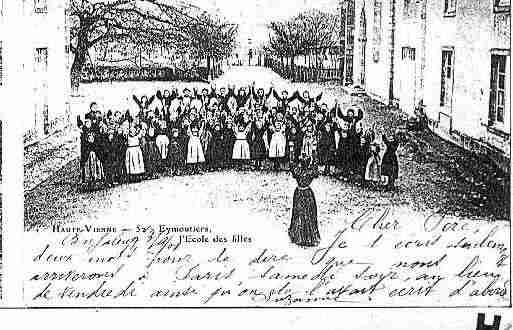 HAUTE-VIENNE — 52 Eymoutiers,
l'Ecole des filles
Cher Père,
je t'écris seulement
deux mots pour te dire que nous
arriverons à Paris samedi soir au lieu
de vendredi ainsi qu'on te l'avait écrit d'abord
Suzanne
H